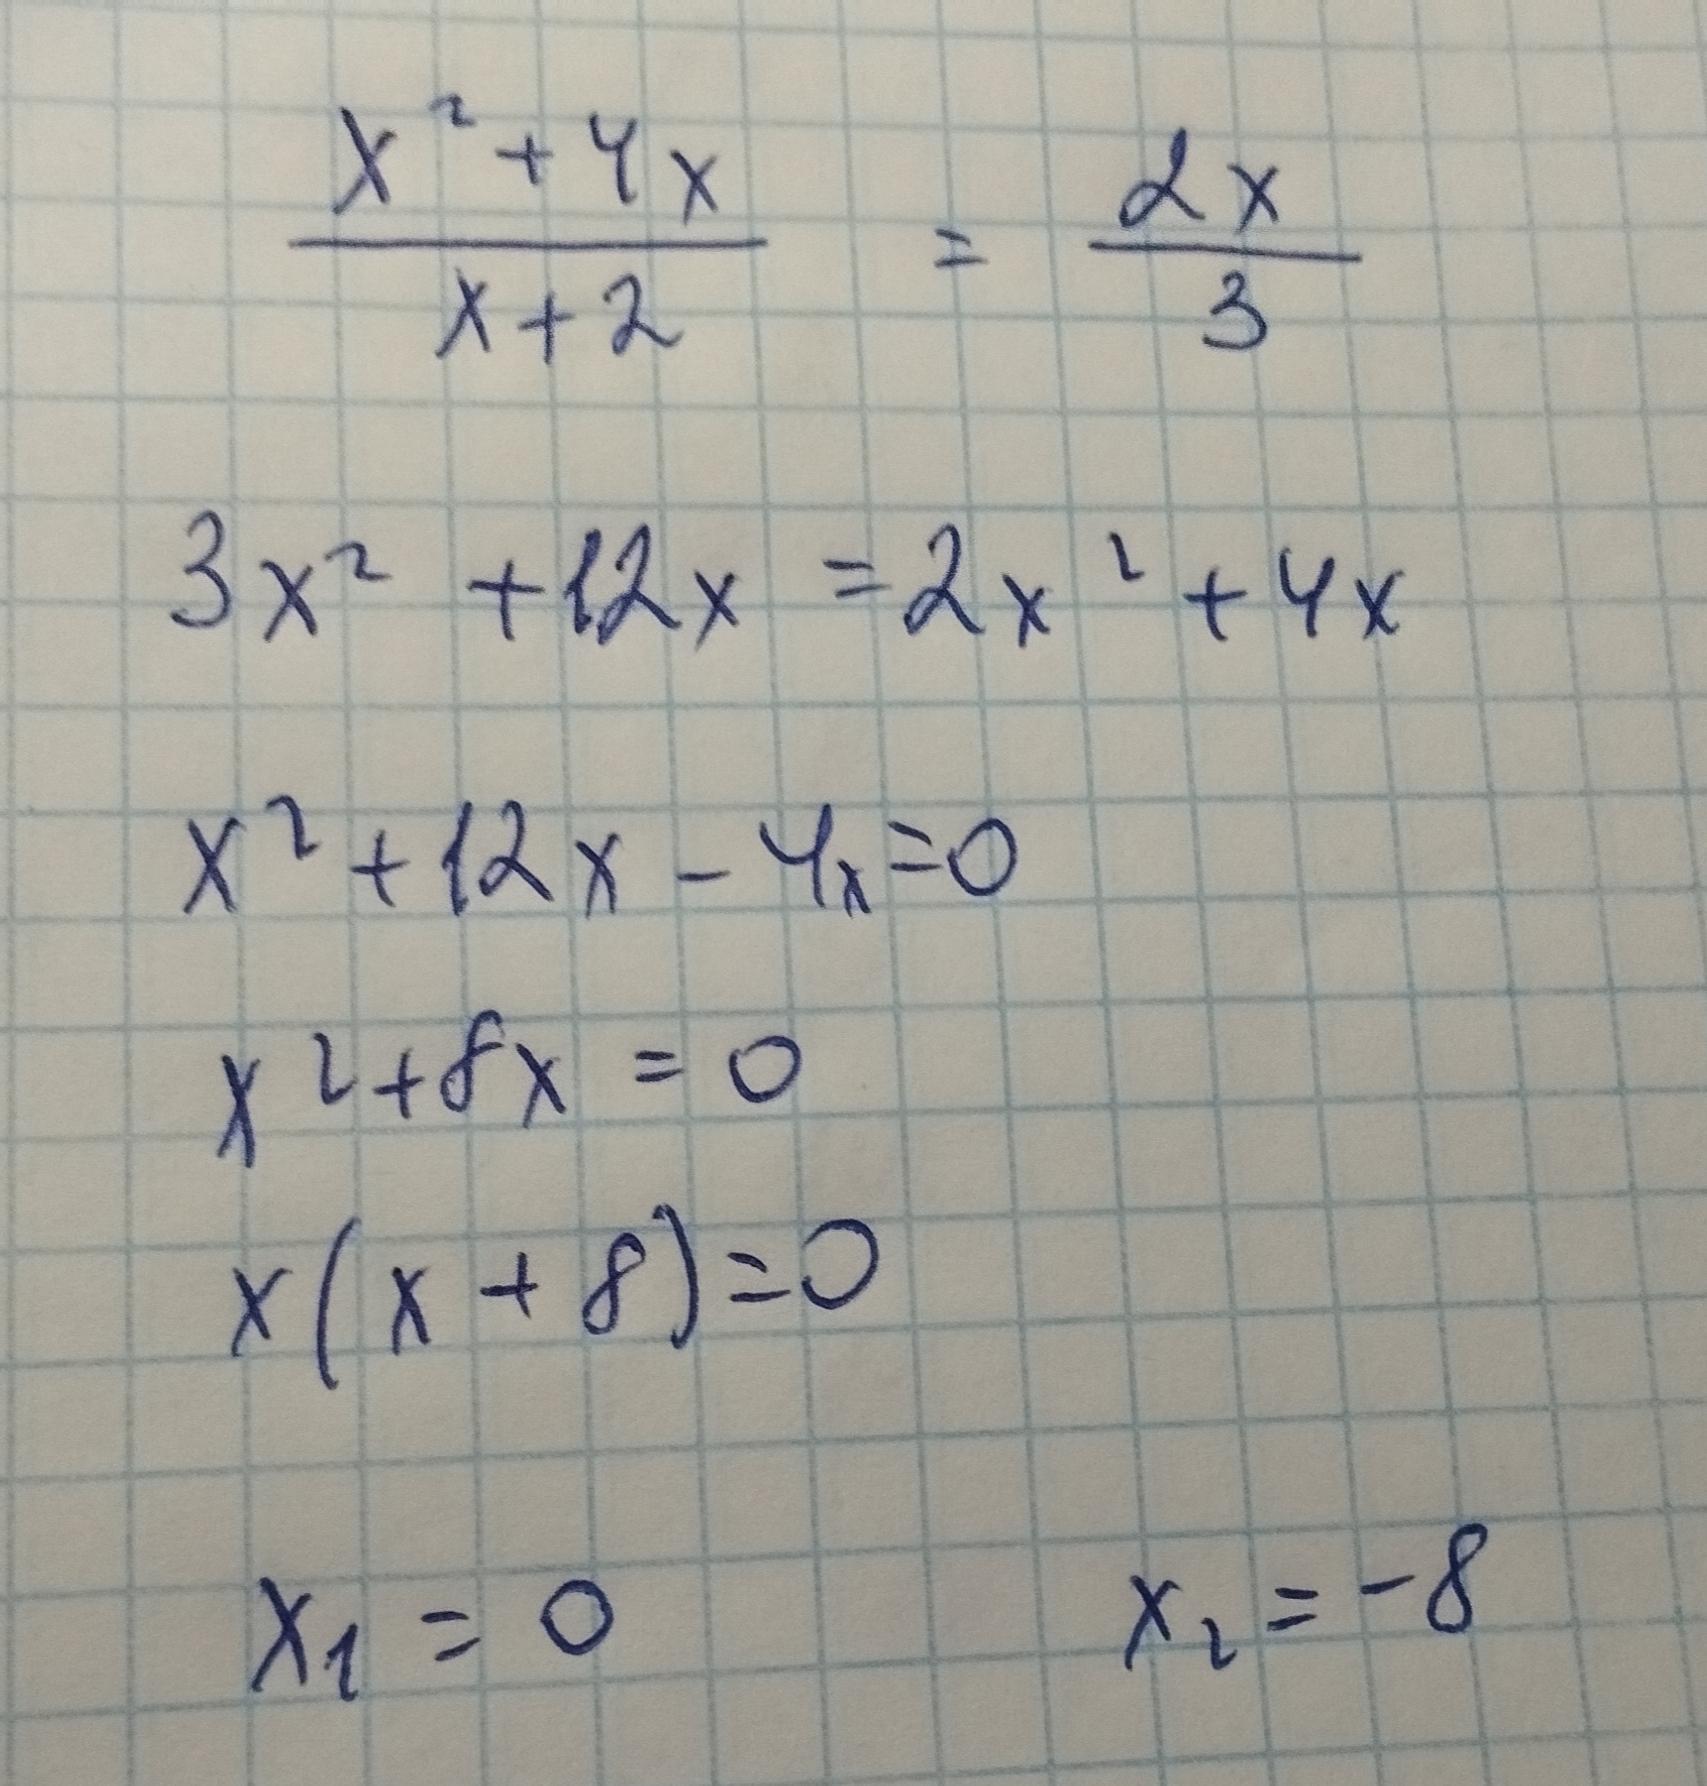 x² + 4x / x + 2 = 2x / 3
3x² + 12x = 2x² + 4x
x² + 12x - 4x = 0
x² + 8x = 0
x(x + 8) = 0
x₁ = 0 x₂ = -8